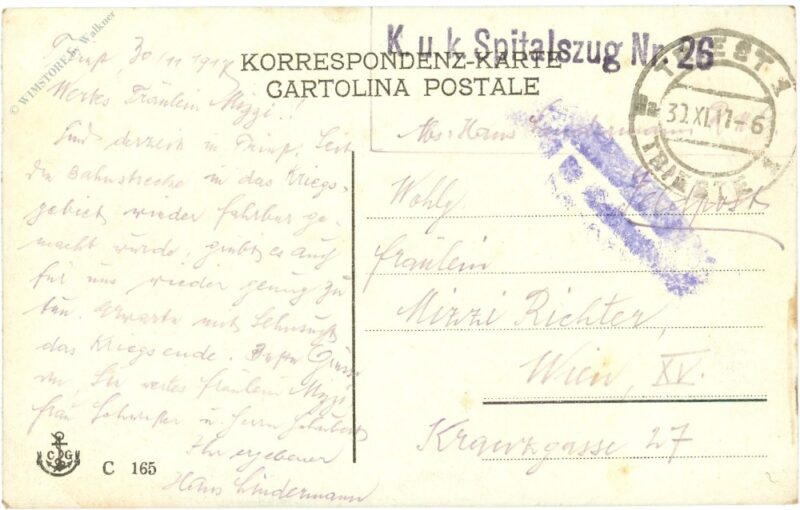 © WIMSTORE E. Walkner
K. u. k. Spitalszug Nr. 26
TRIEST 1
30.XI.17-6
TRIESTE 1
KORRESPONDENZ-KARTE
CARTOLINA POSTALE
Triest, 30/11 1917
Wertes Fräulein Mizzi!
Sind derzeit in Triest. Seit
die Bahnstrecke in das Kriegs-
gebiet wieder fahrbar ge-
macht wurde, giebt es auch
für uns wieder genug zu
tun. Erwarte mit Sehnsucht
das Kriegsende. Beste Grüsse
an, Sie wertes Fräulein Mizzi
Frau Schwester u. Herrn
Ihr ergebener
Hans Lindermann
Abs: Hans Lindermann
Feldpost
Wohlg
Fräulein
Mizzi Richter,
Wien, XV.
Kranzgasse 27
C G
C 165